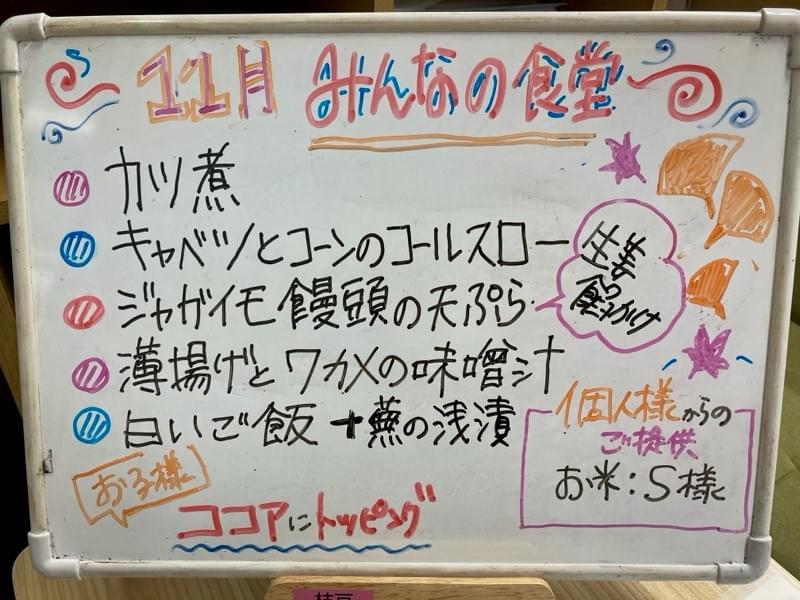 11月 みんなの食堂
カツ煮
キャベツとコーンのコールスロー
ジャガイモ饅頭の天ぷら
生姜
薄揚げとワカメの味噌汁
白いご飯+蕪の浅漬
個人様からの
ご提供
お米:S様
お子様
ココアにトッピング